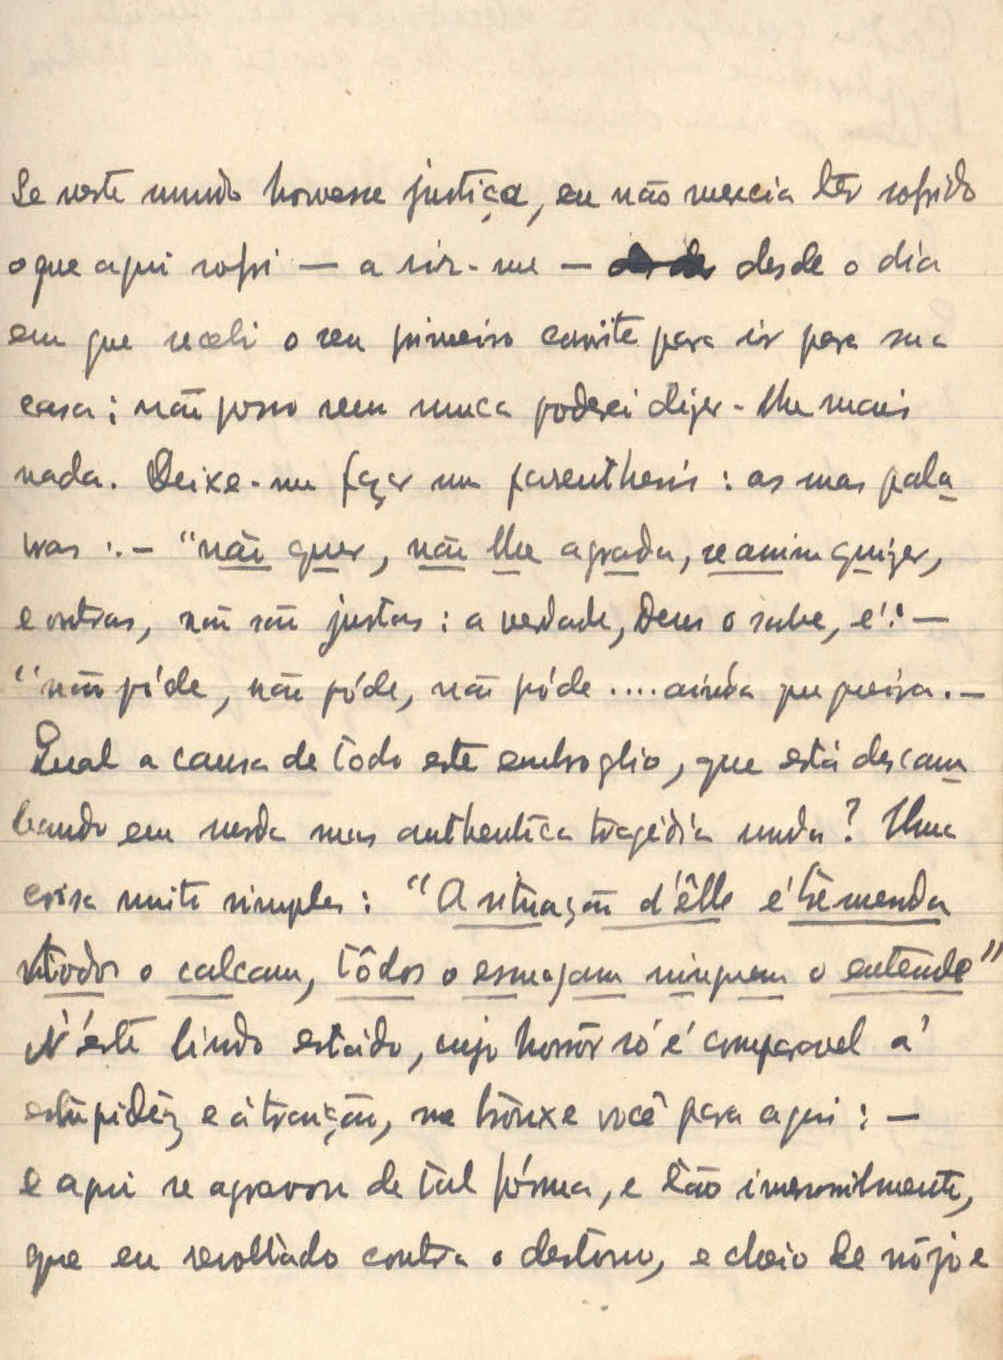 Se neste mundo houvesse justiça, eu não merecia têr sofrido
o que aqui sofri — a sós-me — desde o dia
em que recebi o seu primeiro convite para ir para sua
casa; não posso nem nunca poderei dizer-lhe mais
nada. Deixe-me fazer um parenthesis: as suas pala
vras :— "não quer, não lhe agrada, se a mim quizer,
e outras, não são justas: a verdade, Deus o sabe, é: —
"não póde, não póde, não póde .... ainda que queira. —
Qual a causa de tôdo este embroglio, que está descam
bando em uma authentica tragédia muda? Uma
coisa muito simples: "A situação d'êlle é tremenda
todos o calcam, tôdos o esmagam ninguem o entende"
N'éste lindo estádo, cujo horrôr só é comparavel á
estupidêz e á traição, me trôuxe você para aqui: —
e aqui se agravou de tal fórma, e tão
que eu revoltado contra o destino, e cheio de nôjo e